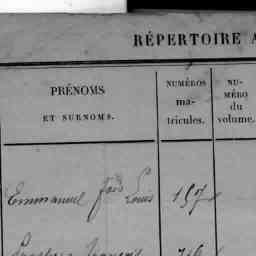 RÉPERTOIRE A
PRÉNOMS
ET SURNOMS.
NUMÉROS
ma-
tricules.
NU-
MÉRO
du
volume.
Emmanuel Louis 157